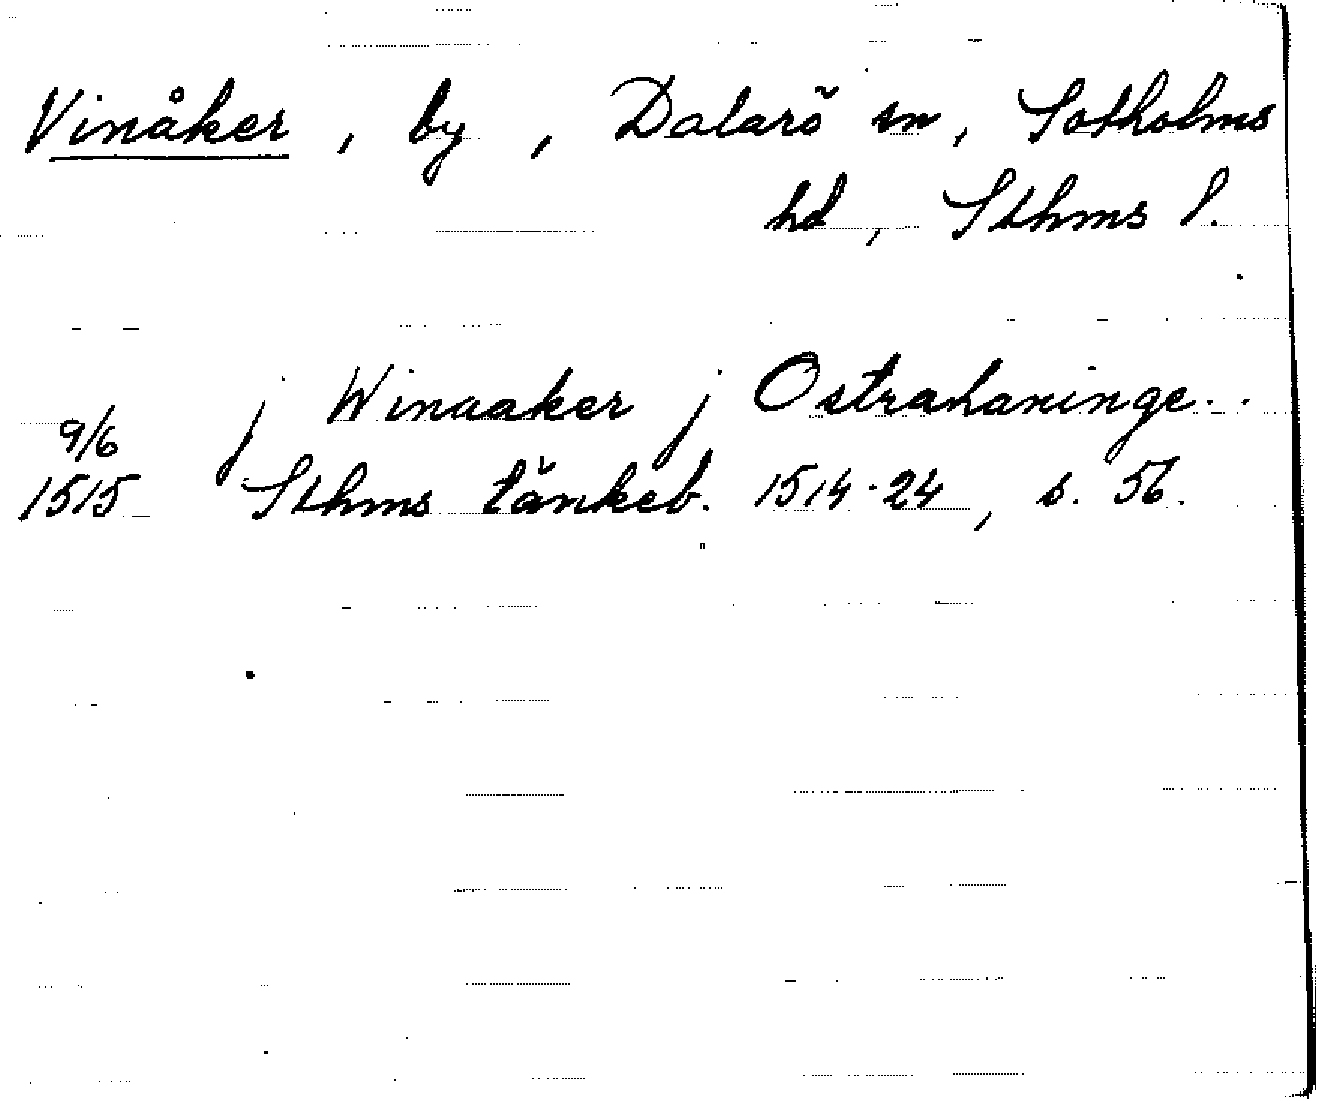 Vinåker, by, Dalarö sn, Sotholms
hd, Sthms l.
j Winaaker j Ostrahaninge..
9/6
1515 Sthms tänkeb. 1514-24, s. 56.